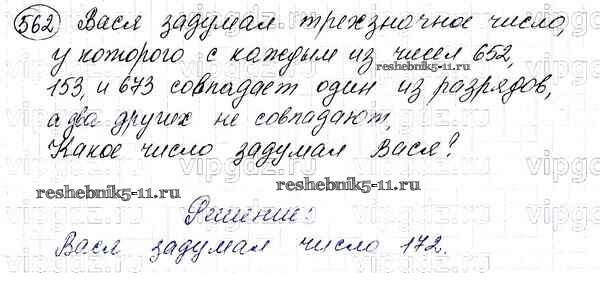 562 Вася задумал трехзначное число,
у которого с каждым из чисел 652,
reshebnik5-11.ru
153, и 673 совпадает один из разрядов,
а два других не совпадают.
Какое число задумал Вася?
reshebnik5-11.ru reshebnik5-11.ru
Решение:
Вася задумал число 172.